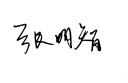 张明智